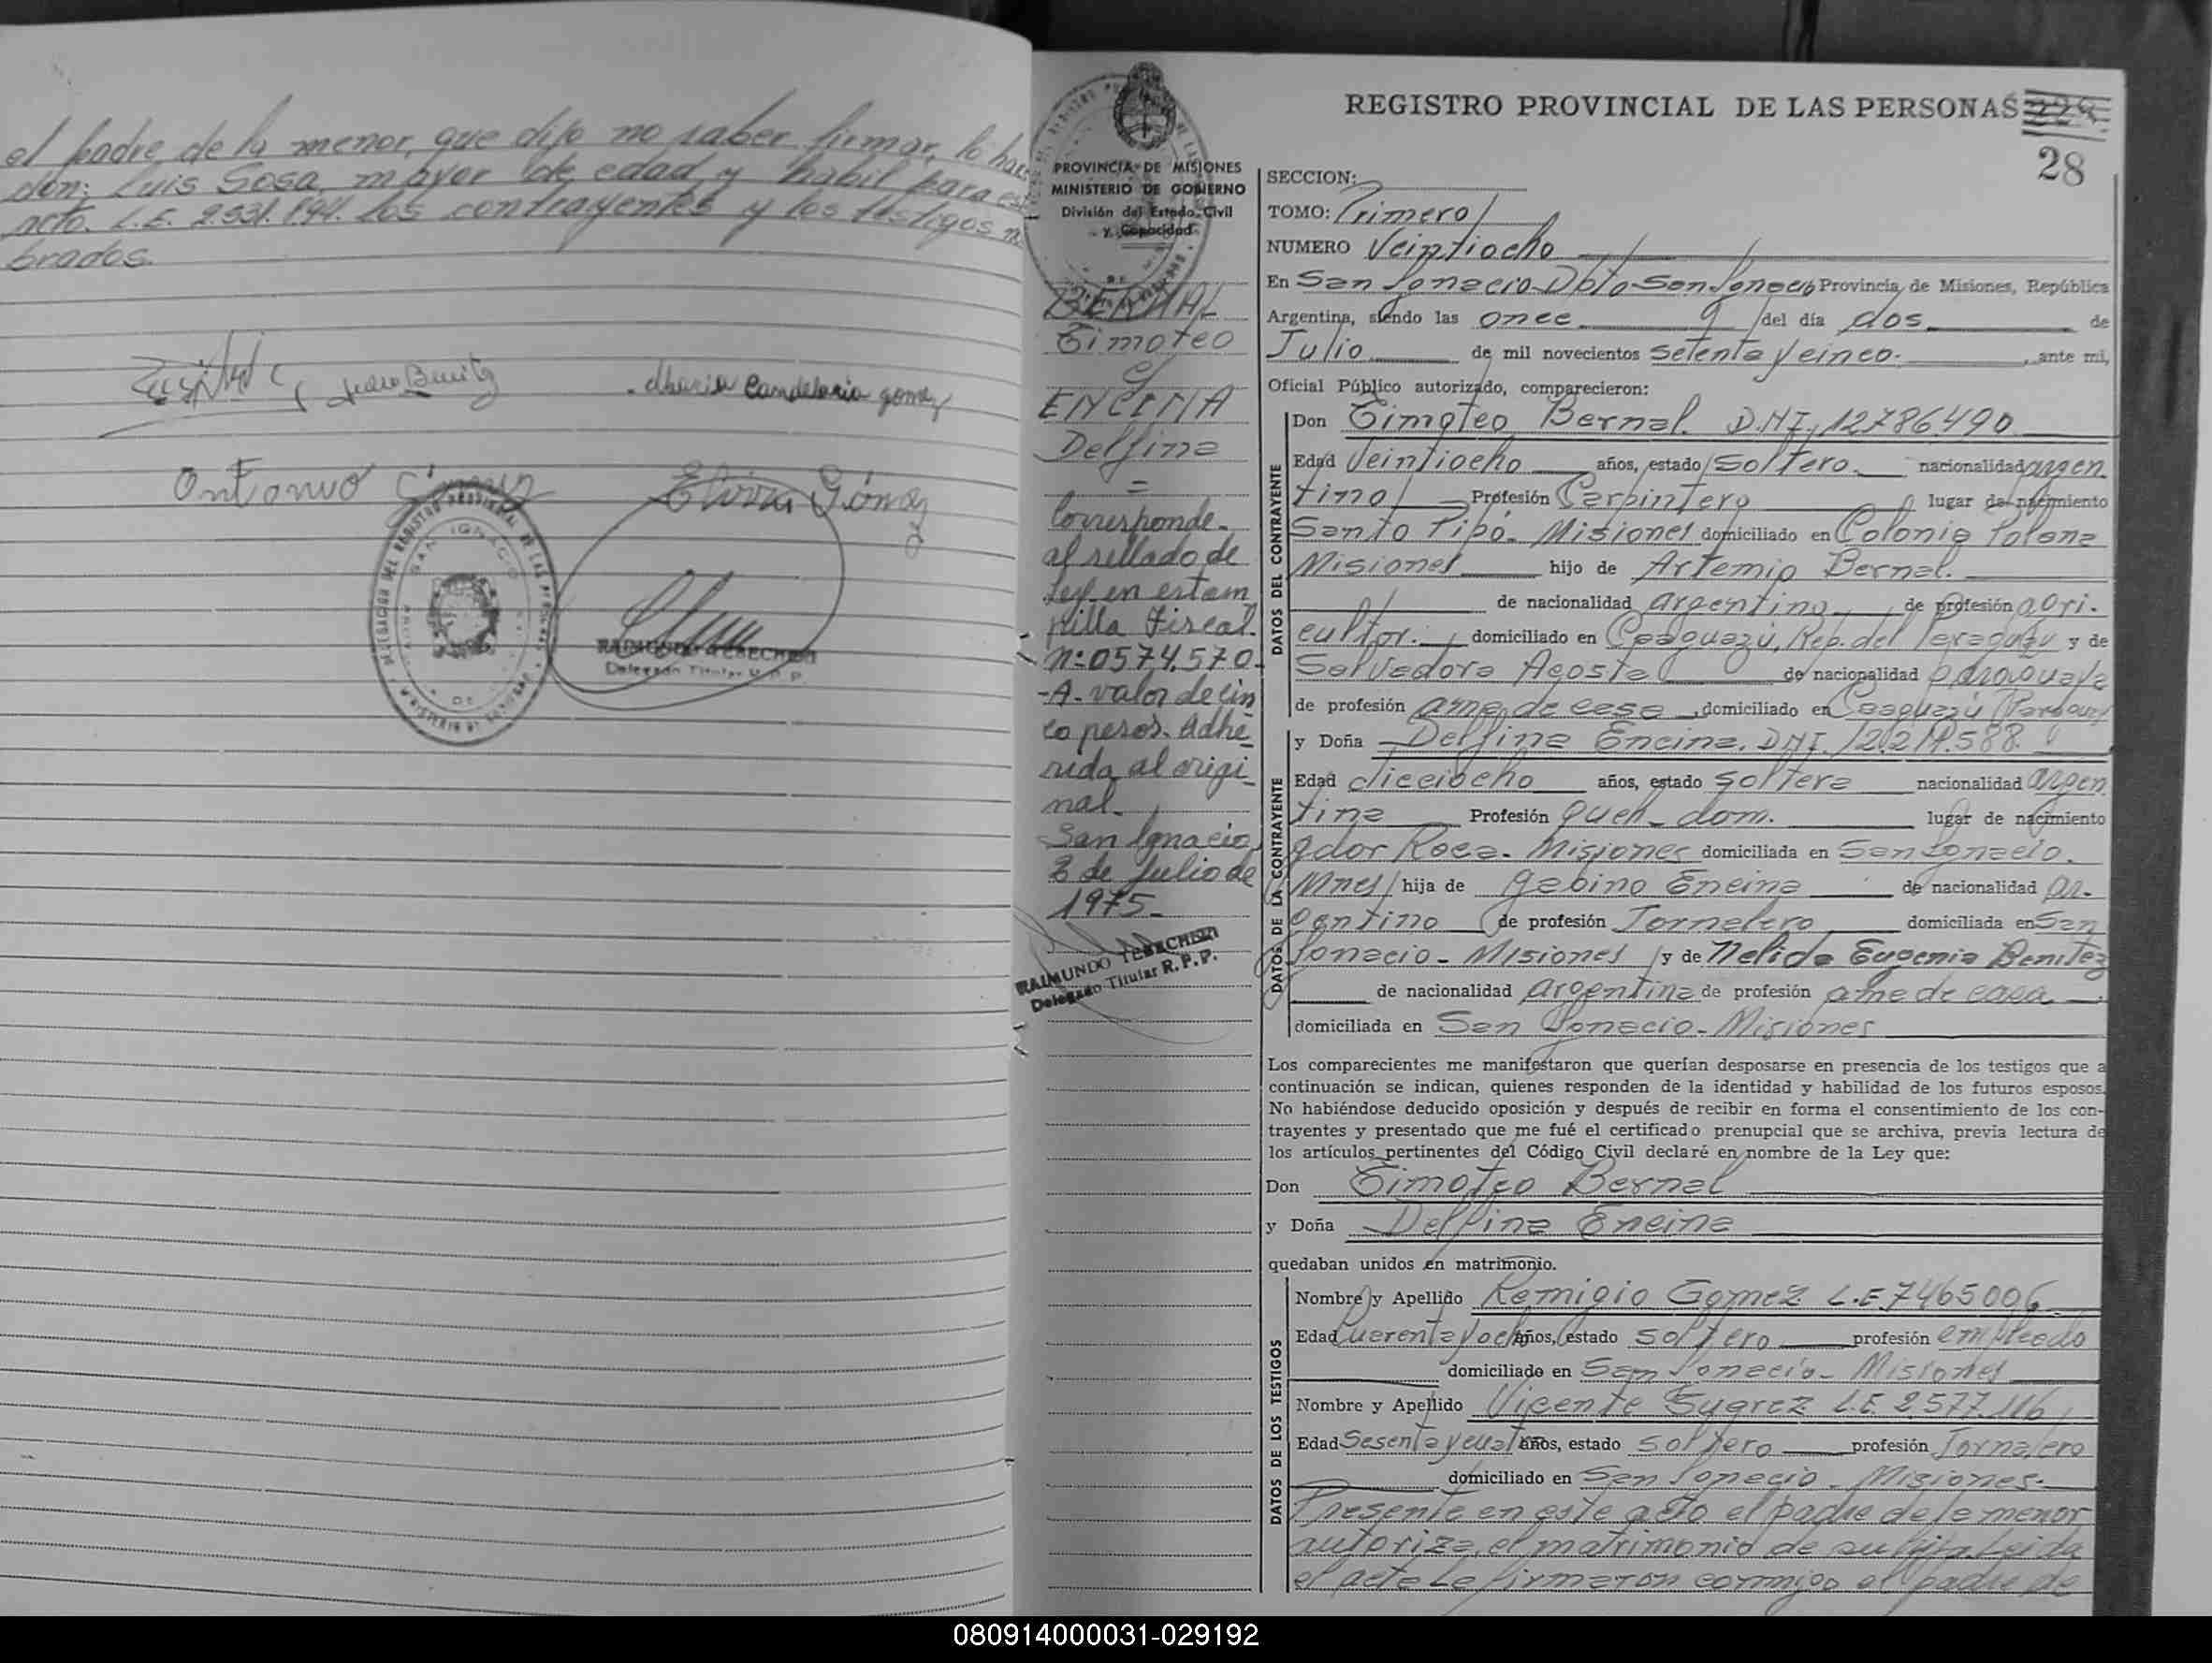 el padre de la menor, que dijo no saber firmar, lo hace
don; Luis Sosa, mayor de edad y habil para este
acto. L.E. 2.531.894. los contrayentes y los testigos
brados.
Maria Candelaria gomez
Antonio Gomez
Elvira Gómez
DELEGACION DEL REGISTRO PROVINCIAL DE LAS PERSONAS
SAN IGNACIO
RAIMUNDO TEBECHERI
Delegado Titular R. P. P.
PROVINCIA DE MISIONES
MINISTERIO DE GOBIERNO
División del Estado Civil
y Capacidad
BERNAL
Timoteo
y
ENCINA
Delfina
=
Corresponde
al sellado de
Ley en estam
pilla Fiscal
nº 0574.570-
-A- valor de cin
co pesos. Adhe
rida al origi
nal.
San Ignacio,
2 de Julio de
1975-
RAIMUNDO TEBECHERI
Delegado Titular R. P. P.
REGISTRO PROVINCIAL DE LAS PERSONAS
28
SECCION:
TOMO: Primero
NUMERO Veintiocho
En San Ignacio Dpto San Ignacio Provincia de Misiones, República
Argentina, siendo las once del día dos de
Julio de mil novecientos setenta y cinco. , ante mi,
Oficial Público autorizado, comparecieron:
DATOS DEL CONTRAYENTE
Don Timoteo Bernal. D.N.I. 12.786.490
Edad Veintiocho años, estado soltero. nacionalidad argen
tino Profesión Carpintero lugar de nacimiento
Santo Pipó- Misiones domiciliado en Colonia Polana
Misiones hijo de Artemio Bernal.
de nacionalidad argentino de profesión agri-
cultor. domiciliado en Caaguazú, Rep. del Paraguay y de
Salvadora Acosta de nacionalidad paraguaya
de profesión ama de casa , domiciliado en Caaguazú Paraguay
DATOS DE LA CONTRAYENTE
y Doña Delfina Encina. DNI. 12.219.588.
Edad dieciocho años, estado soltera nacionalidad argen
tina Profesión queh- dom. lugar de nacimiento
gdor Roca- Misiones domiciliada en San Ignacio.
Mnes hija de Gabino Encina de nacionalidad ar-
gentino de profesión Jornalero domiciliada en San
Ignacio- Misiones y de Nelida Eugenia Benitez
de nacionalidad argentina de profesión ama de casa
domiciliada en San Ignacio- Misiones
Los comparecientes me manifestaron que querían desposarse en presencia de los testigos que a
continuación se indican, quienes responden de la identidad y habilidad de los futuros esposos.
No habiéndose deducido oposición y después de recibir en forma el consentimiento de los con-
trayentes y presentado que me fué el certificado prenupcial que se archiva, previa lectura de
los artículos pertinentes del Código Civil declaré en nombre de la Ley que:
Don Timoteo Bernal
y Doña Delfina Encina
quedaban unidos en matrimonio.
DATOS DE LOS TESTIGOS
Nombre y Apellido Remigio Gomez L.E. 7465006
Edad Cuarenta y ocho años, estado soltero profesión empleado
domiciliado en San Ignacio- Misiones
Nombre y Apellido Vicente Suarez L.E. 2.577.116
Edad Sesenta y cuatro años, estado soltero profesión Jornalero
domiciliado en San Ignacio- Misiones.
Presente en este acto el padre de la menor
autoriza el matrimonio de su hija. Leida
el acta La firmaron conmigo el padre de
080914000031-029192